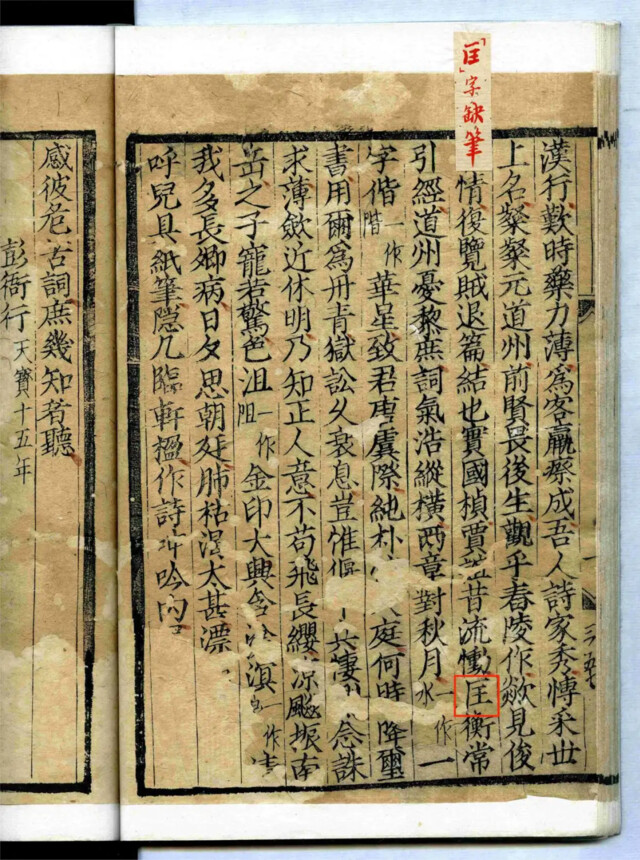 「匡」字缺筆
漢行歎時藥力薄爲客羸瘵成吾人詩家秀博采世
上名粲粲元道州前賢畏後生觀乎舂陵作歘見俊
情復覽賊退篇結也實國楨賈誼昔流慟匡衡常
引經道州憂黎庶詞氣浩縱橫兩章對秋月一作水一
字偕一作階華星致君唐虞際純朴庭何時降璽
書用爾爲丹青獄訟久衰息豈惟偃兵悽念誅
求薄斂近休明乃知正人意不苟飛長纓涼飈振南
岳之子寵若驚色沮一作阻金印大興含溟一作
我多長卿病日夕思朝廷肺枯渴太甚漂
呼兒具紙筆隱几臨軒楹作詩呻吟内
感彼危苦詞庶幾知者聽
彭衙行天寶十五年